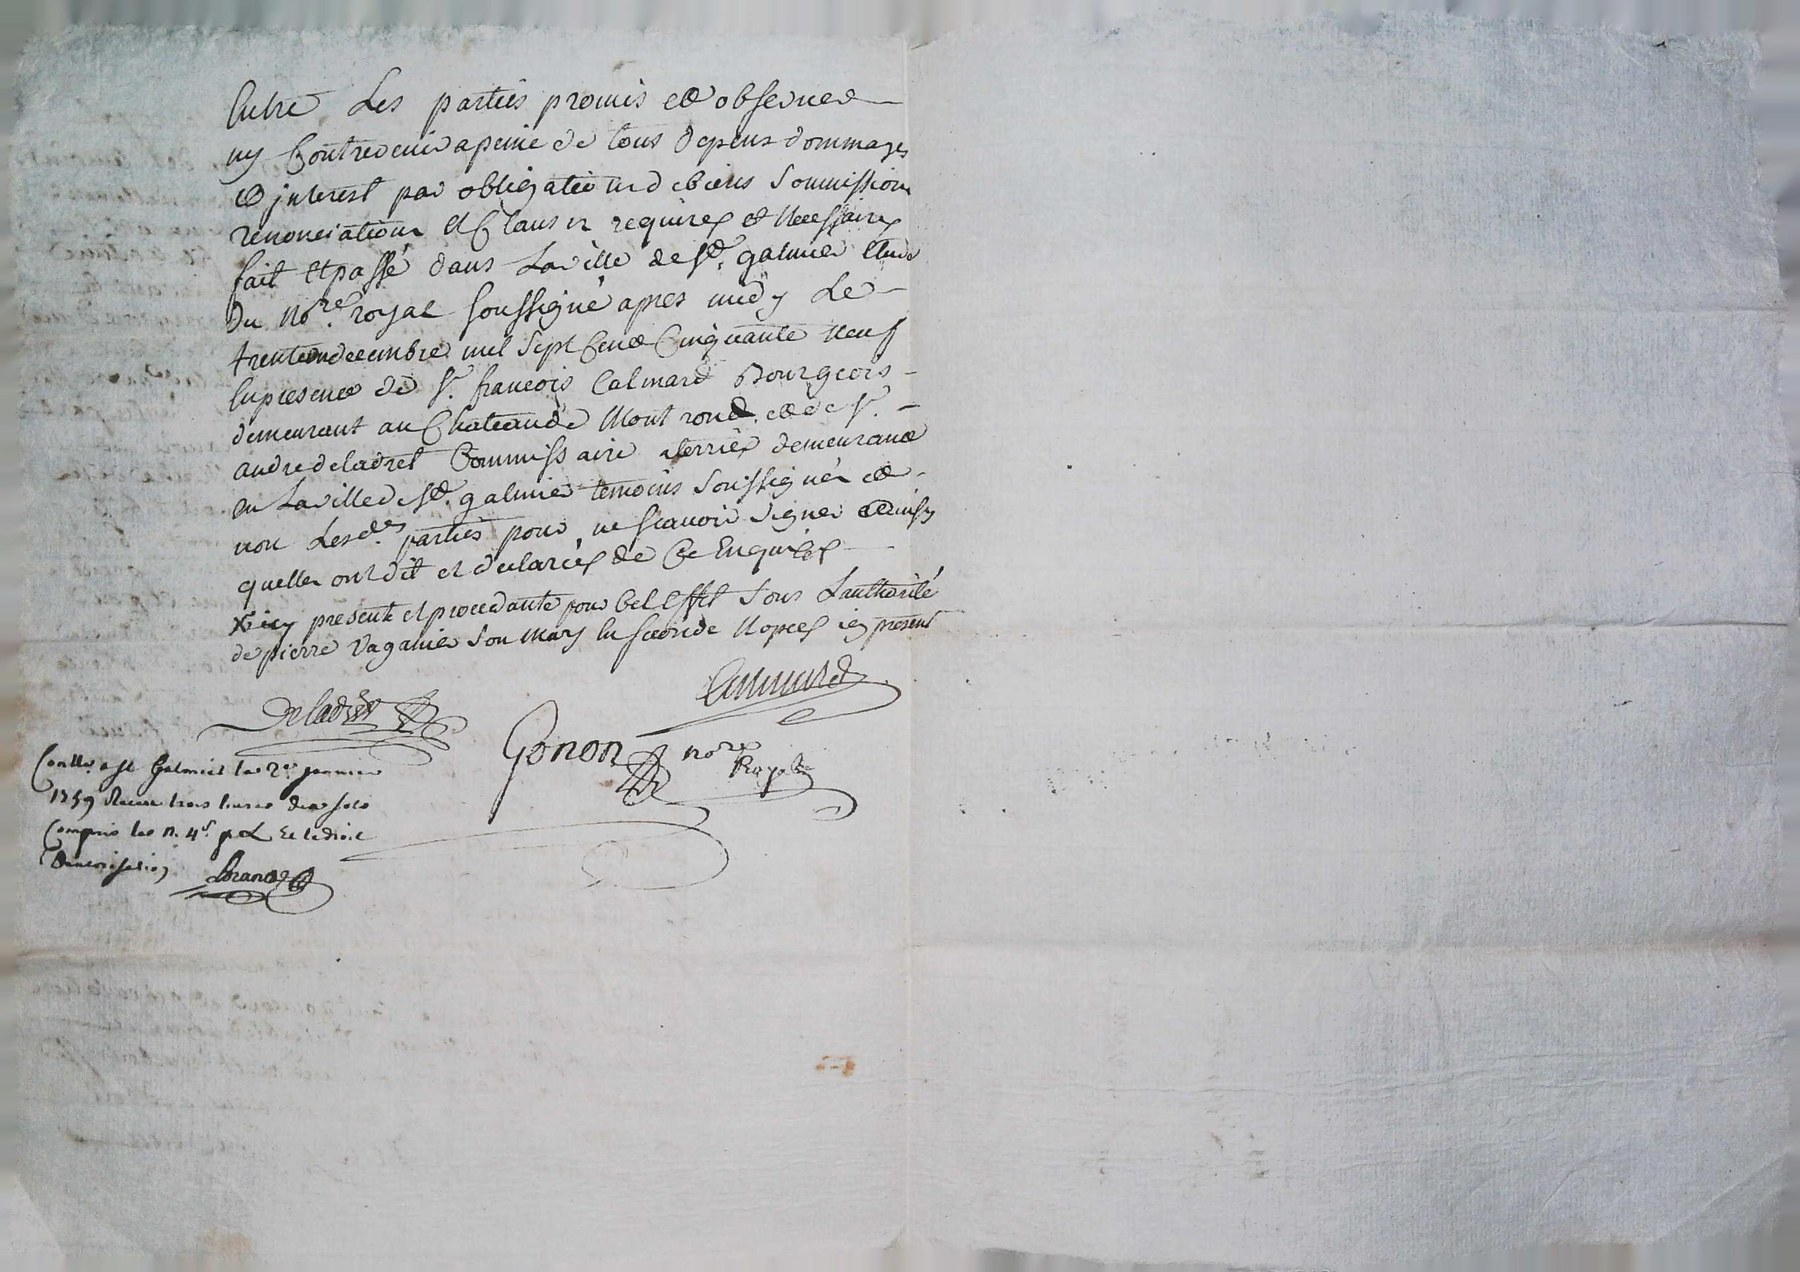 Entre Les parties promis et observer
ny Contrevenir a peine de tous depens dommages
et jnterest par obligation de biens Soumission
renonciation et Clauses requises et Necessaires
fait et passé dans La ville de St. galmier Etude
du Nore. royal Soussigné apres midy Le
trente decembre mil Sept Cent Cinquante Neuf
En presence de Sr. françois Calmard Bourgeois
demeurant au Chateau de Montrond et de Sr.
andre deladret Commissaire a terrier demeurant
en La ville de St. galmier temoins Soussignés et
non Lesdes. parties pour ne Scavoir Signer ainsy
quelles ont dit et declarées de Ce Enquises
X icy presente et procedante pour Cet Effet Sous L'authorité
de pierre Vaganier Son mary En Seconde Nopces icy present
Calmard
Deladret
Gonon nore Royal
Contlé a St Galmier le 2e janvier
1759 Receu trois livres dix sols
Compris les n. 4s. p L et le droit
Dinsinuation